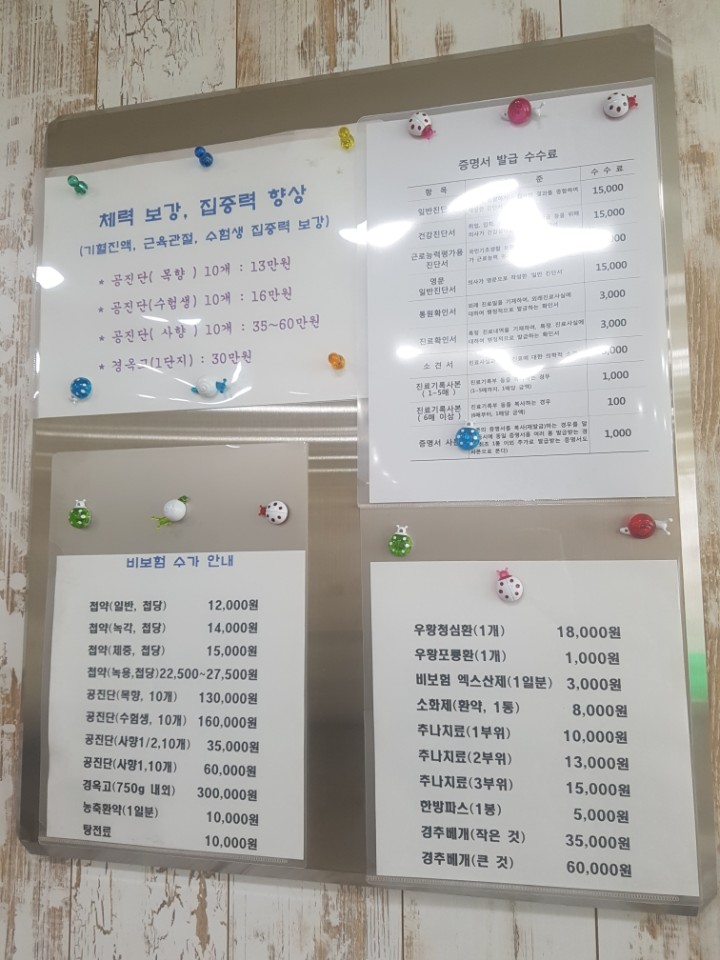 체력 보강, 집중력 향상
(기혈진액, 근육관절, 수험생 집중력 보강)
* 공진단( 목향 ) 10개 : 13만원
* 공진단(수험생) 10개 : 16만원
* 공진단( 사향 ) 10개 : 35~60만원
* 경옥고(1단지) : 30만원
증명서 발급 수수료
항 목 준 수 수 료
일반진단 15,000
건강진단서 15,000
근로능력평가용 진단서
영문 일반진단서 의사가 영문으로 작성한 '일반 진단서' 15,000
통원확인서 외래 진료일을 기재하여, 외래진료사실에 대하여 행정적으로 발급하는 확인서 3,000
진료확인서 특정 진료내역을 기재하여, 특정 진료사실에 대하여 행정적으로 발급하는 확인서 3,000
소 견 서
진료기록사본 (1~5매) 1,000
진료기록사본 (6매 이상) 진료기록부 등을 복사하는 경우 (6매부터, 1매당 금액) 100
증명서 사본 1,000
비보험 수가 안내
첩약(일반, 첩당) 12,000원
첩약(녹각, 첩당) 14,000원
첩약(체중, 첩당) 15,000원
첩약(녹용,첩당)22,500~27,500원
공진단(목향, 10개) 130,000원
공진단(수험생, 10개) 160,000원
공진단(사향1/2,10개) 35,000원
공진단(사향1,10개) 60,000원
경옥고(750g 내외) 300,000원
농축환약(1일분) 10,000원
탕전료 10,000원
우황청심환(1개) 18,000원
우황포룡환(1개) 1,000원
비보험 엑스산제(1일분) 3,000원
소화제(환약, 1통) 8,000원
추나치료(1부위) 10,000원
추나치료(2부위) 13,000원
추나치료(3부위) 15,000원
한방파스(1봉) 5,000원
경추베개(작은 것) 35,000원
경추베개(큰 것) 60,000원